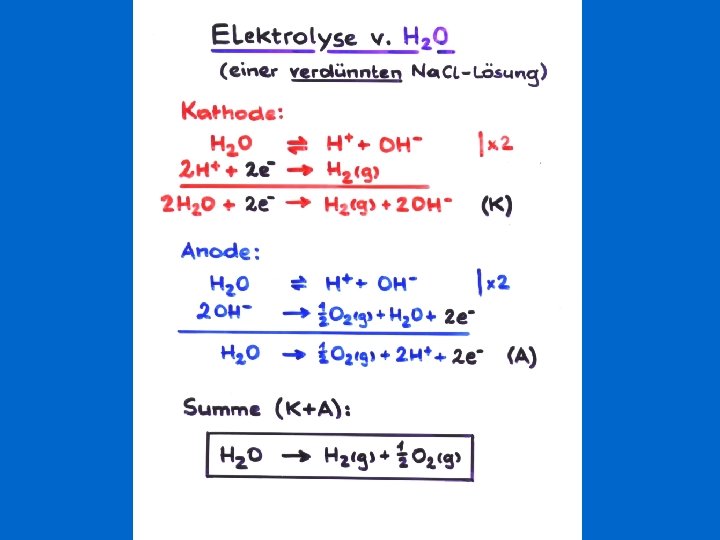 Elektrolyse v. H₂O
(einer verdünnten NaCl-Lösung)
Kathode:
H₂O ⇌ H⁺ + OH⁻ | x2
2H⁺ + 2e⁻ → H₂(g)
2H₂O + 2e⁻ → H₂(g) + 2OH⁻ (K)
Anode:
H₂O ⇌ H⁺ + OH⁻ | x2
2OH⁻ → ½O₂(g) + H₂O + 2e⁻
H₂O → ½O₂(g) + 2H⁺ + 2e⁻ (A)
Summe (K+A):
H₂O → H₂(g) + ½O₂(g)